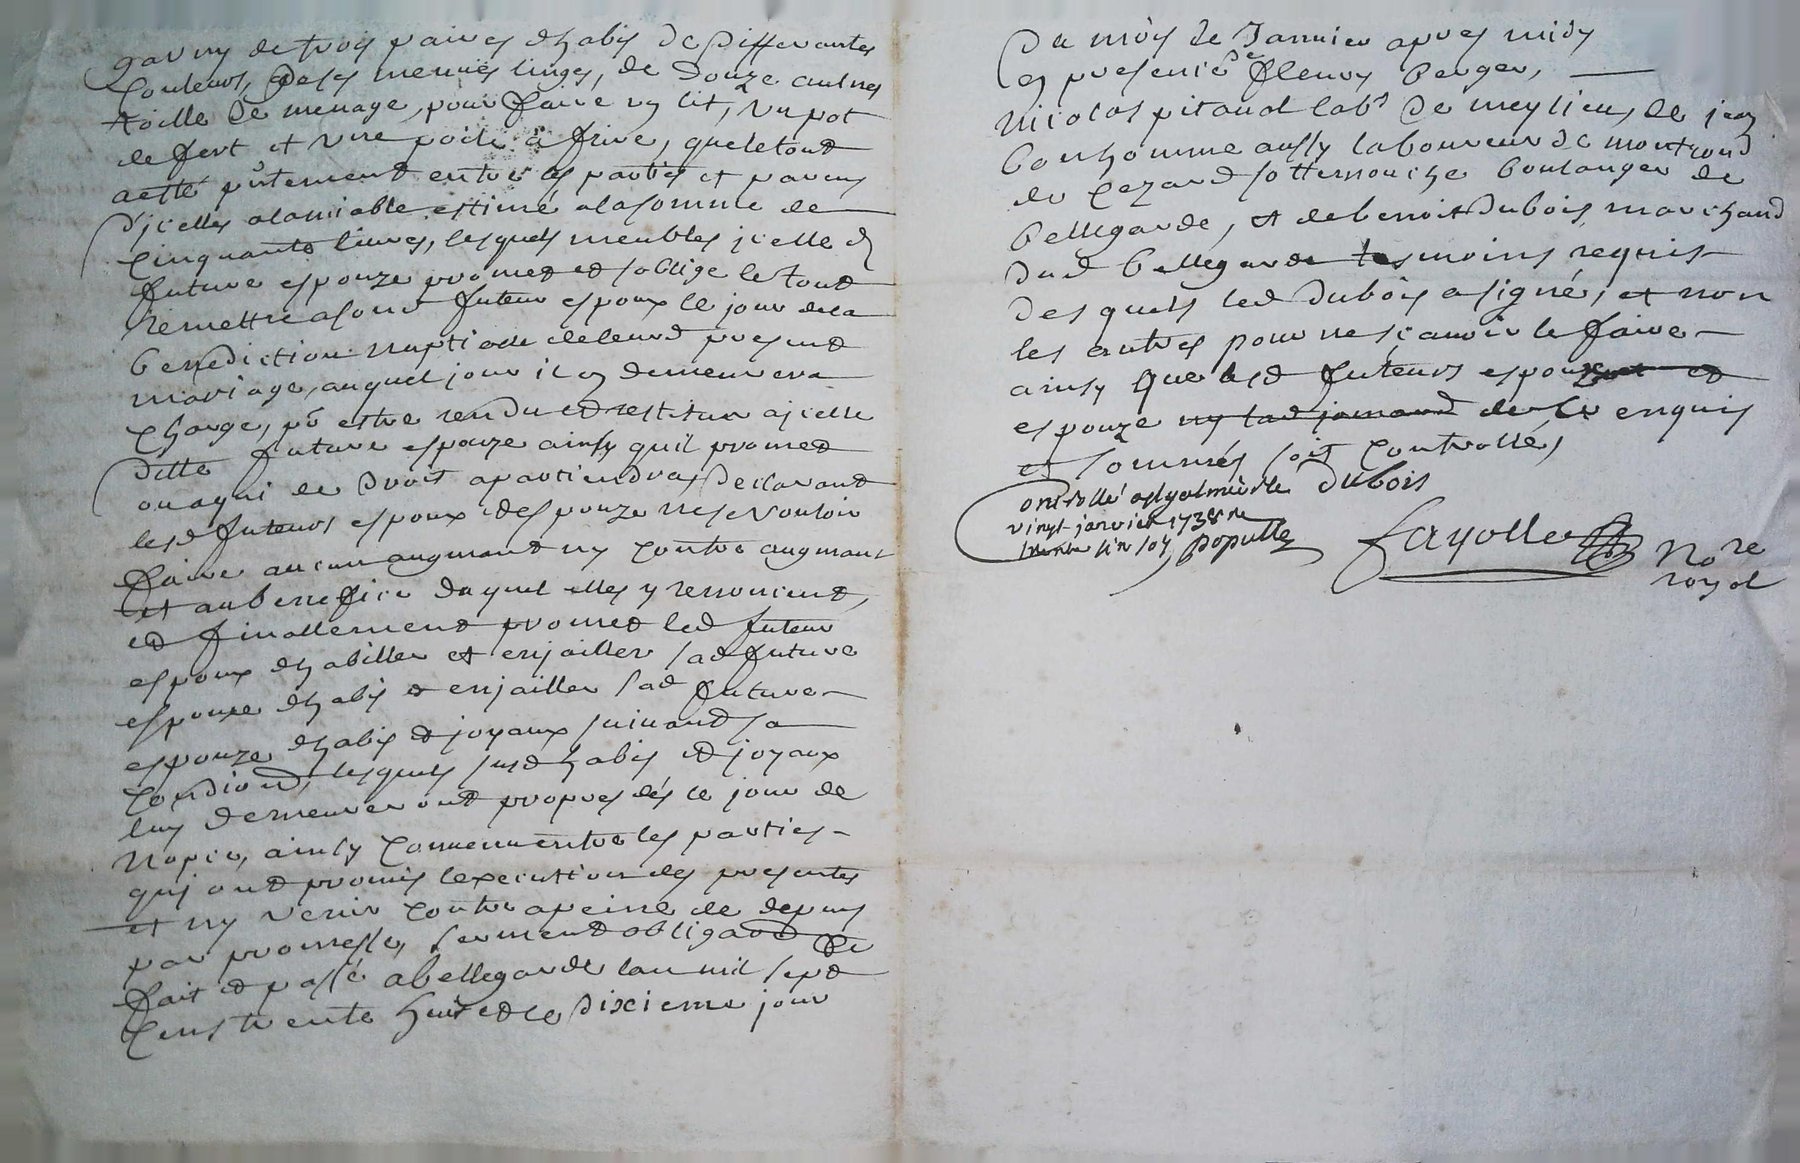 garny de trois paires d'habis de differantes
Couleurs, de ses menues linges, de Douze aulnes
toille de menage, pour faire un lit, un pot
de fert et une poile à frire, que le tout
a esté p̃ntement entre les parties et parens
d'jcelles alamiable estimé ala somme de
Cinquante livres, lesquels meubles jcelle d
future espouze promet et soblige le tout
remettre asond futeur espoux le jour dela
benediction nuptialle deleurd present
mariage, auquel jour il en demeurera
Chargé, pr estre rendu et restitué ajcelle
ditte future espouze ainsy quil promet
ou aqui de droit apartiendra, Declarant
lesd futeurs espoux et espouze ne se vouloir
faire aucun augmant ny contre augmant
et au benefice duquel elles y renoncent,
et finallement promet led futeur
espoux d'habiller et enjailler sad future
espouze d'habis et enjailler sad future
espouze d'habis et joyaux suivand sa
Condiond, lesquels susd habis et joyaux
luy demeureront propres dés le jour de
Nopce, ainsy Convenu entre les parties
qui ont promis l'execution des presentes
et ny venir contre apeine de depens
par promesse, serment obligaond &c
fait et passé a bellegarde lan mil sept
Cens trente huit et le dixieme jour
Du mois de Janvier apres midy
en presence de fleury berger,
Nicolas pitaud labr de meylieu, de jean
bonhomme aussy laboureur de montrond
de Cezard sottemouche boulanger de
bellegarde, et de benoit Dubois marchand
dud bellegarde tesmoins requis
desquels led Dubois a signé, et non
les autres pour ne sçavoir le faire
ainsy que lesd futeurs espoux et
espouze de ce enquis
et sommés soit Controllé,
Controllé a st galmier le Dubois
vingt janvier 1738 R
Populle
fayolle Nore
royal